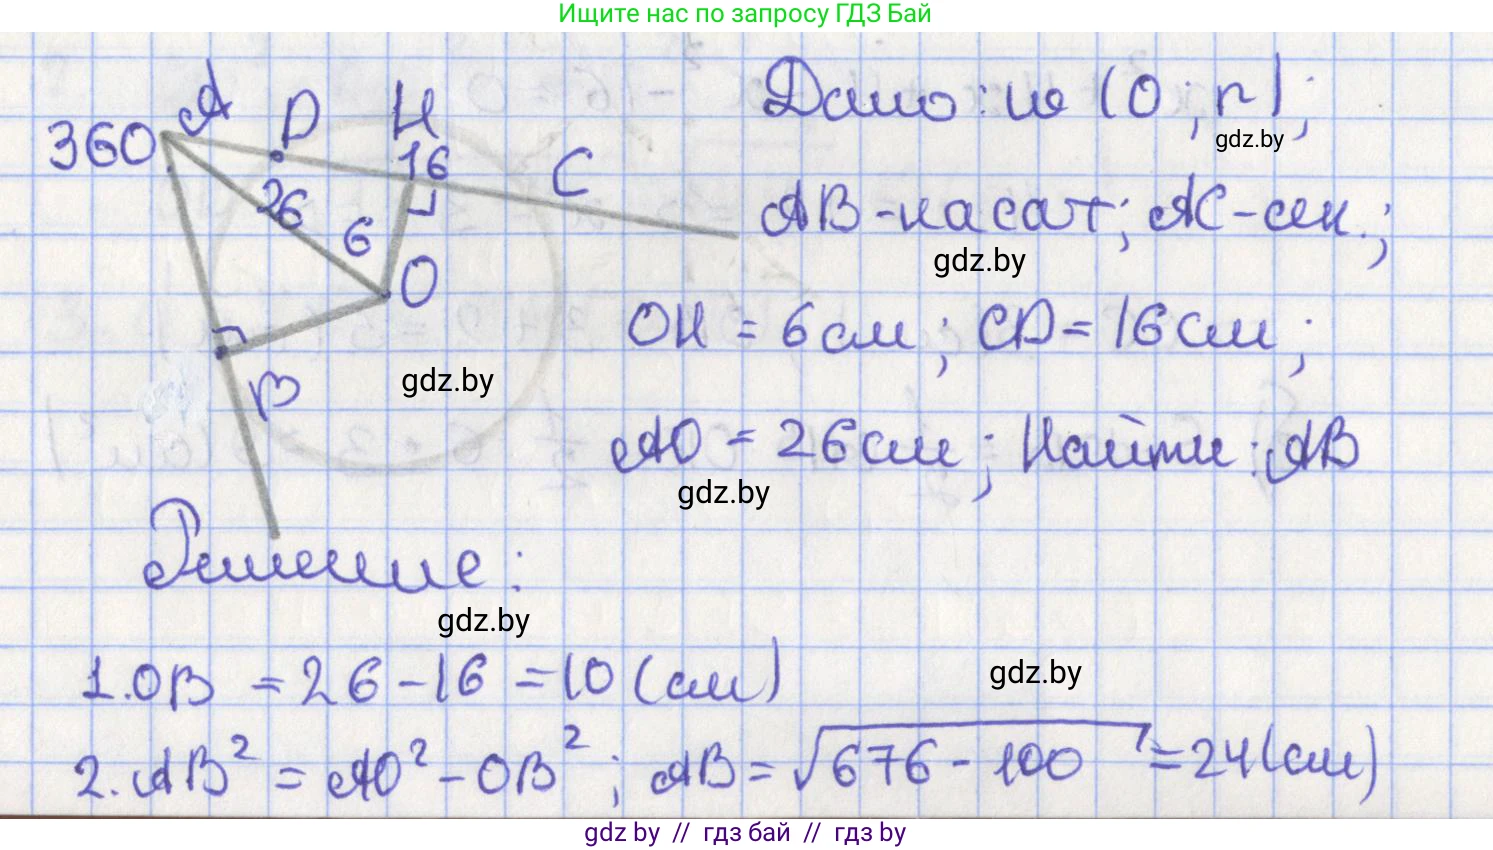 Ищите нас по запросу ГДЗ Бай
360 A D H 16 C
26 6 O
B
Дано: w (O; r);
gdz.by
AB - касат; AC - сек.;
gdz.by
OH = 6 см; CD = 16 см;
gdz.by
AO = 26 см; Найти: AB
gdz.by
Решение:
gdz.by
1. OB = 26 - 16 = 10 (см)
gdz.by
2. AB² = AO² - OB²; AB = √676 - 100 = 24 (см)
gdz.by // гдз бай // гдз by